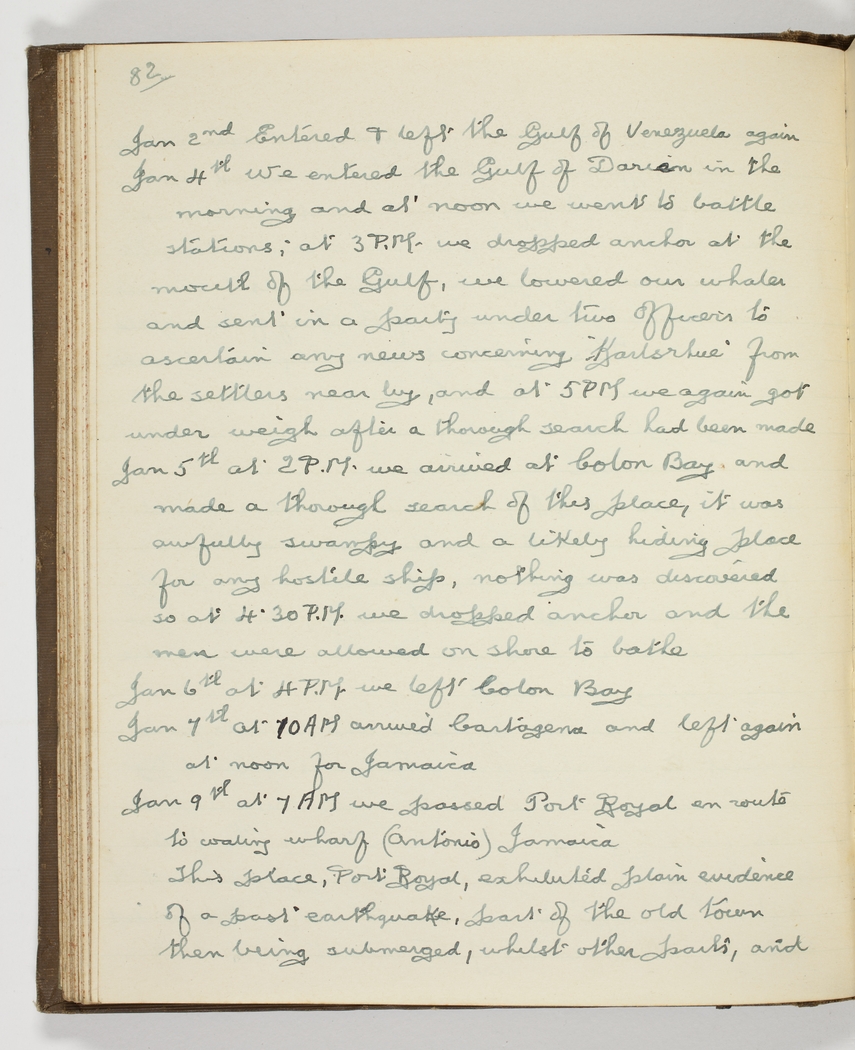 82
Jan 2nd Entered & left the Gulf of Venezuela again
Jan 4th We entered the Gulf of Darien in the
morning and at noon we went to battle
stations; at 3 P.M. we dropped anchor at the
mouth of the Gulf, we lowered our whaler
and sent in a party under two officers to
ascertain any news concerning 'Karlsrhue' from
the settlers near by, and at 5 PM we again got
under weigh after a thorough search had been made
Jan 5th at 2 P.M. we arrived at Colon Bay and
made a thorough search of this place, it was
awfully swampy and a likely hiding place
for any hostile ship, nothing was discovered
so at 4.30 P.M. we dropped anchor and the
men were allowed on shore to bathe
Jan 6th at 4 P.M. we left Colon Bay
Jan 7th at 10 AM arrived Cartagena and left again
at noon for Jamaica
Jan 9th at 7 AM we passed Port Royal en route
to coaling wharf (Antonio) Jamaica
This place, Port Royal, exhibited plain evidence
of a past earthquake, part of the old town
then being submerged, whilst other parts, and